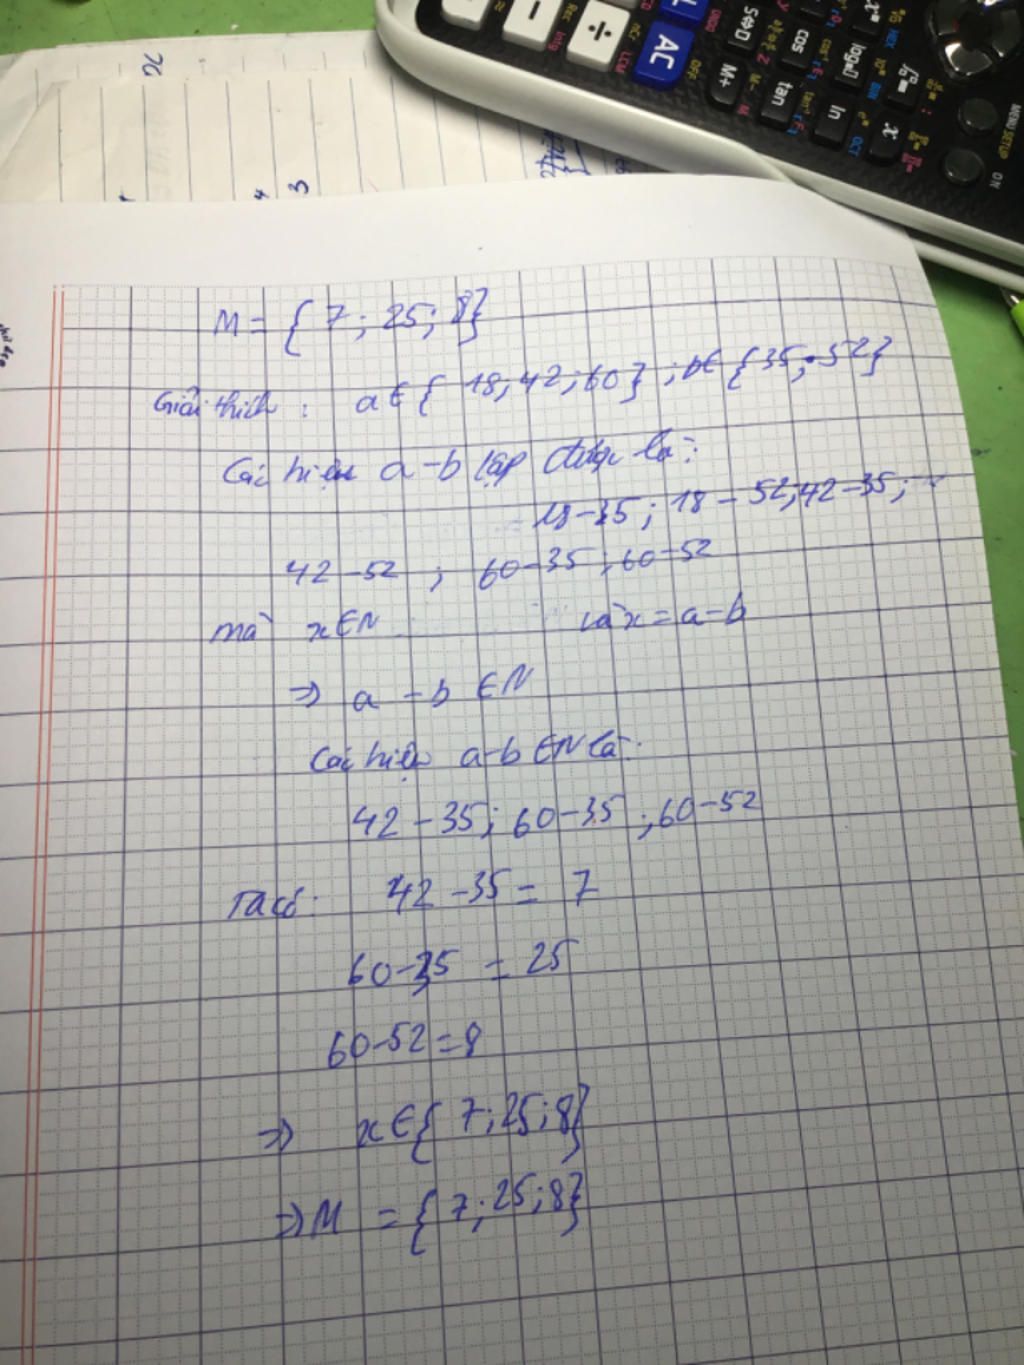 M = { 7 ; 25 ; 8}
Giải thích : a ∈ { 18 ; 42 ; 60} ; b ∈ {35 ; 52}
Các hiệu a - b lập được là :
18 - 35 ; 18 - 52 ; 42 - 35 ;
42 - 52 ; 60 - 35 ; 60 - 52
mà x ∈ N và x = a - b
⇒ a - b ∈ N
Các hiệu a - b ∈ N là :
42 - 35 ; 60 - 35 ; 60 - 52
Ta có : 42 - 35 = 7
60 - 35 = 25
60 - 52 = 8
⇒ x ∈ { 7 ; 25 ; 8}
⇒ M = { 7 ; 25 ; 8}
AC
OFF
M+
S⇔D
cos
tan
log
ln
x
M-
M
LCM
HEX
BIN
OCT
MENU SETUP
ON
3
4